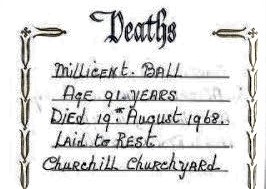 Deaths
Millicent. Ball
Age 91 years
Died 19th August 1968.
Laid to Rest
Churchill Churchyard